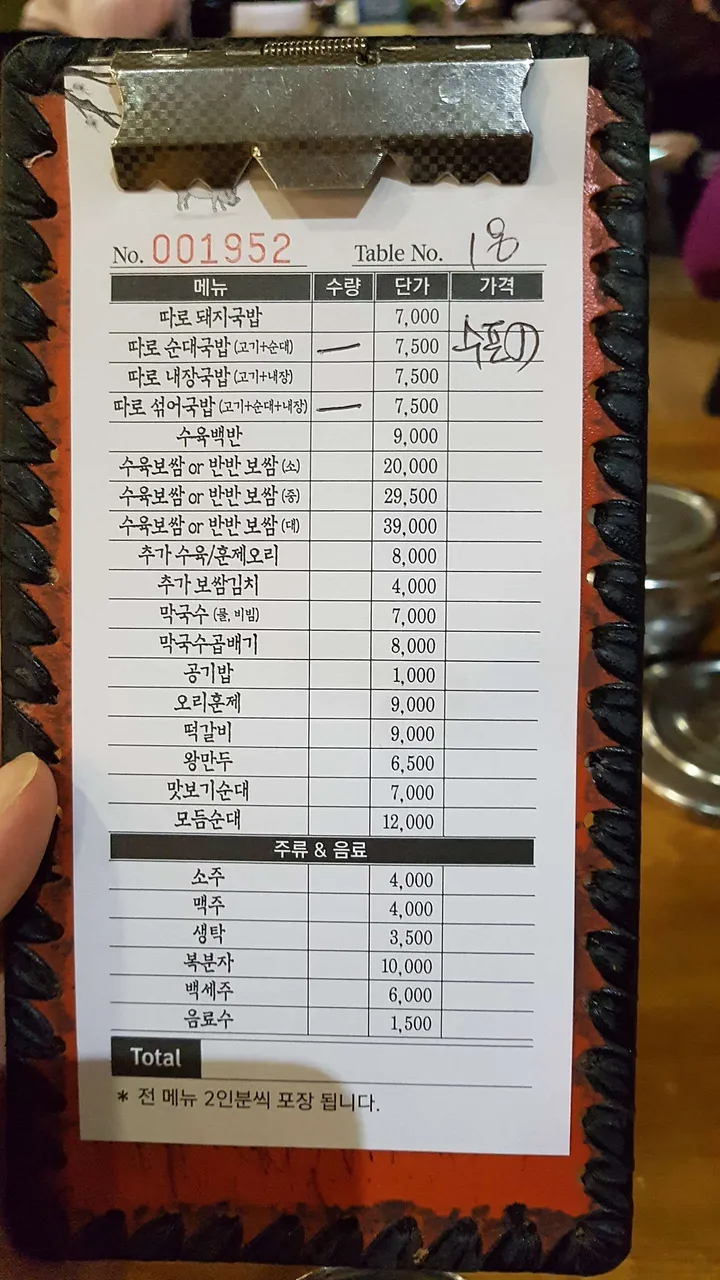 No. 001952 Table No. 18
메뉴 수량 단가 가격
따로 돼지국밥 7,000
따로 순대국밥 (고기+순대) — 7,500
따로 내장국밥 (고기+내장) 7,500
따로 섞어국밥 (고기+순대+내장) — 7,500
수육백반 9,000
수육보쌈 or 반반 보쌈 (소) 20,000
수육보쌈 or 반반 보쌈 (중) 29,500
수육보쌈 or 반반 보쌈 (대) 39,000
추가 수육/훈제오리 8,000
추가 보쌈김치 4,000
막국수 (물, 비빔) 7,000
막국수곱배기 8,000
공기밥 1,000
오리훈제 9,000
떡갈비 9,000
왕만두 6,500
맛보기순대 7,000
모듬순대 12,000
주류 & 음료
소주 4,000
맥주 4,000
생탁 3,500
복분자 10,000
백세주 6,000
음료수 1,500
Total
* 전 메뉴 2인분씩 포장 됩니다.